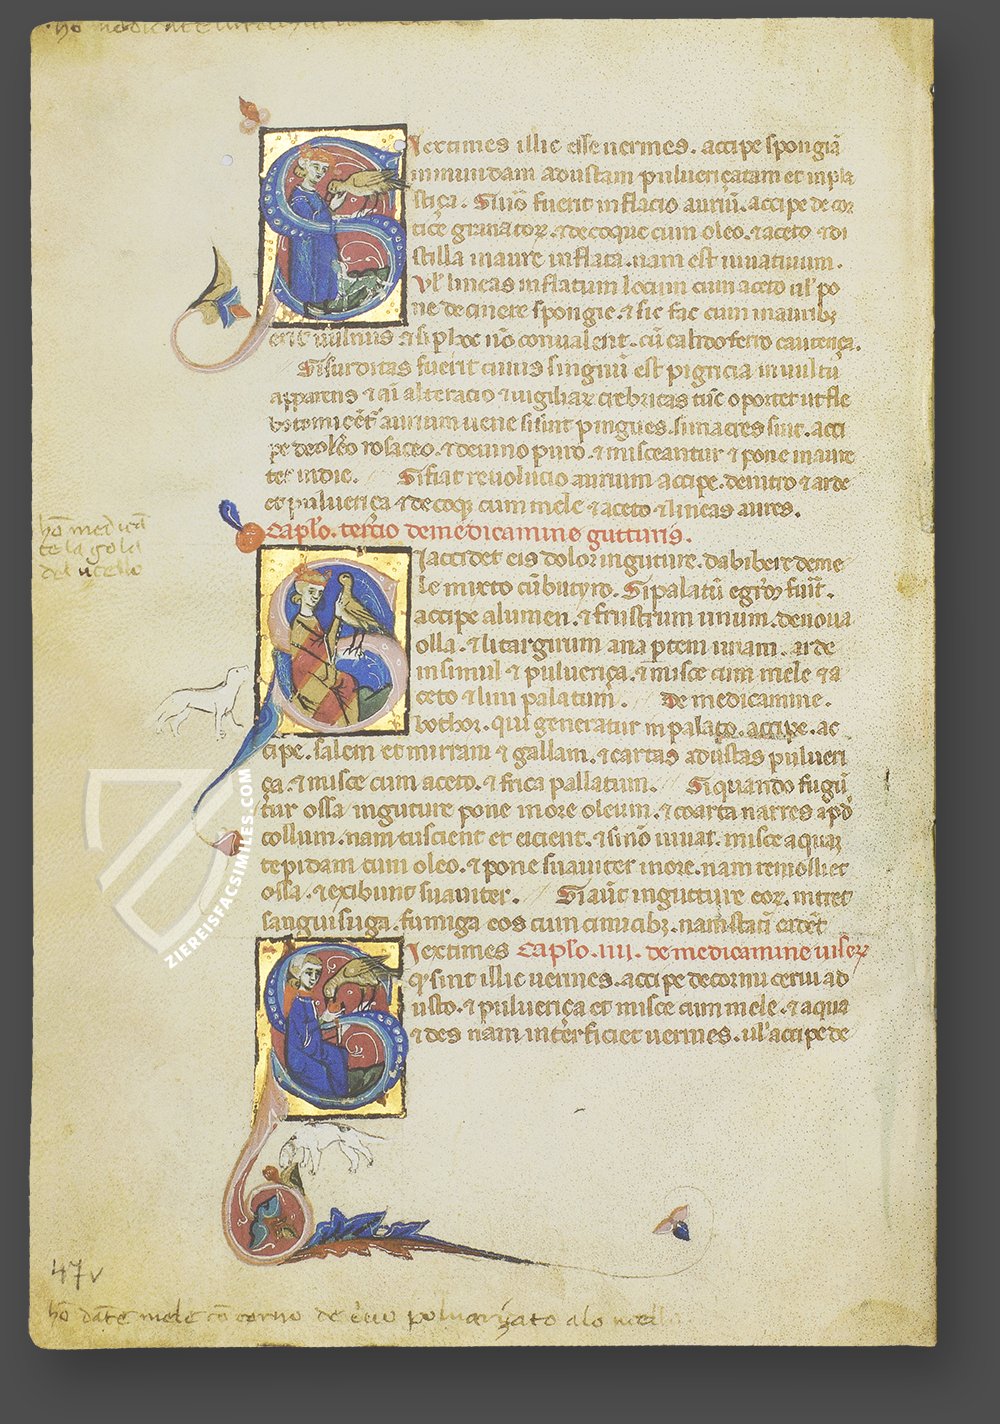 S iextimes illic esse uermes. accipe spongiā
inmundam adustam pulueriçatam et inpla
stiça. Siuō fuerit inflacio auriū. accipe de cor
tice granator. & decoque cum oleo. & aceto & di
stilla inaure inflata. nam est iuuatiuum.
Vl' lineas inflatum locum cum aceto ul' po
ne de cinere spongie & sic fac cum inauribꝫ
erit uulnus & si phoc nō conualerit. cū calido ferro cauteriça.
Si surditas fuerit cuius singnū est pigricia in uultu
apparens & cū alteracio & uigiliaꝝ crebritas tūc oportet ut fle
botomicēt aurium uene si sint pingues. si macres sint. acci
pe de oleo rosaceo. & de uino puro. & misceantur & pone inaure
ter indie. Si fiat reuolucio aurium accipe. de nitro & arde
et pulueriça & decoqꝫ cum mele & aceto & lineas aures.
Caplo. tercio de medicamine gutturis.
hō medicā
te la gola
del ucello
S i accidet eis dolor inguture. da bibere de me
le mixto cū butyro. Si palatū egrōꝝ fuīt.
accipe alumen. & frustrum unum. de noua
olla. & litargirum ana ptem unam. arde
insimul & pulueriça. & misce cum mele & a
ceto & lini palatum. De medicamine.
bothor. qui generatur in palato. accipe. ac
cipe. salem et mirram & gallam. & cartas adustas pulueri
ça. & misce cum aceto. & frica pallatum. Si quando fugū
tur ossa inguture pone inore oleum. & coarta narres apd
collum. nam tuscient et eicient. & si nō iuuat. misce aquaꝫ
tepidam cum oleo. & pone suauiter inore. nam remolliet
ossa. & exibunt suauiter. Si aūt ingutture eoꝝ. intret
sanguisuga. fumiga eos cum cimicibꝫ. nam statī cadēt
S iextimes Caplo. IIII. de medicamine uiserꝝ
qꝫ sint illic uermes. accipe de cornu cerui ad
usto. & pulueriça et misce cum mele. & aqua
& des nam interficiet uermes. ul' accipe de
47v
hō dāte mele cō corno de ceruo poluarizato a lo ucello
ZIEREISFACSIMILES.COM